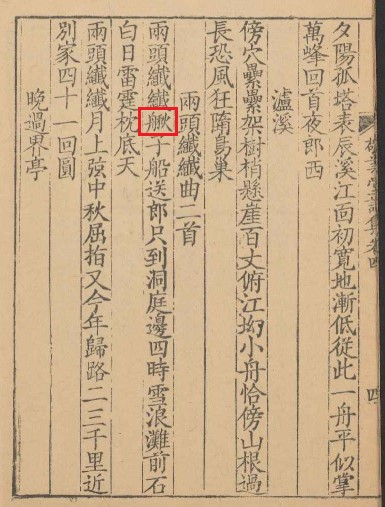 夕陽孤塔表辰溪江面初寬地漸低從此一舟平似掌
萬峰回首夜郎西
瀘溪
傍穴纍纍架樹梢懸崖百丈俯江坳小舟恰傍山根過
長恐風狂隋鳥巢
兩頭纖纖曲二首
兩頭纖纖子船送郎只到洞庭邊四時雪浪灘前石
白日雷霆枕底天
兩頭纖纖月上弦中秋屈指又今年歸路二三千里近
別家四十一回圓
晚過界亭